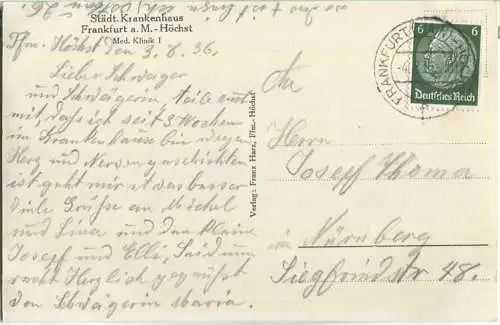 Städt. Krankenhaus
Frankfurt a. M.-Höchst
Med. Klinik I
Ffm. Höchst den 3. 8. 36.
Lieber Schwager
und Schwägerin teile euch
mit das ich seit 3 Wochen
im Krankenhaus bin wegen
Herz und Nervengeschichten
ist geht mir etwas besser
viele Grüße an Michel
und Lina und den kleine
Josepf und Elli, Seid nun
recht Herzlich gegrüßt
von Schwägerin Maria.
Verlag: Franz Harz, Ffm.-Höchst
An
Herrn
Josepf Thoma
in Nürnberg
Siegfriedstr 48.
6 6
Deutsches Reich
FRANKFURT